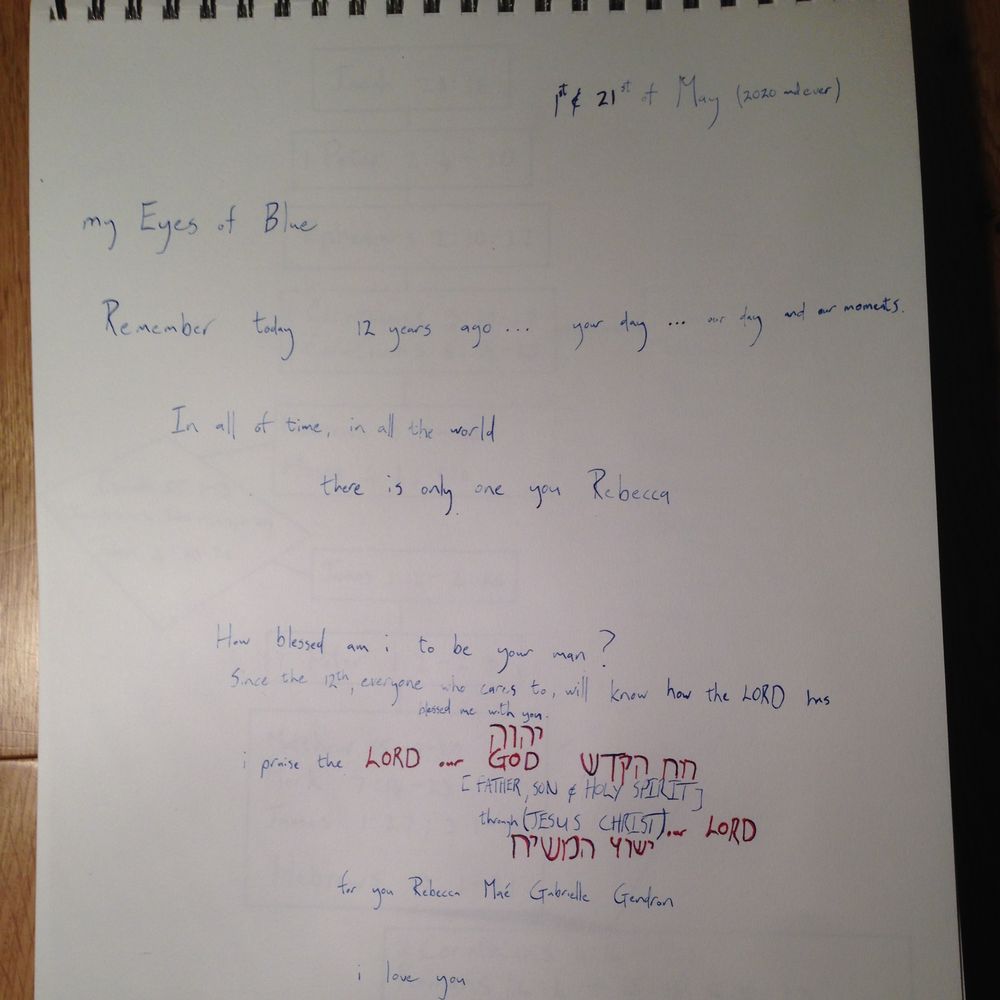 1st & 21st of May (2020 and ever)
my Eyes of Blue
Remember today 12 years ago ... your day ... our day and our moments.
In all of time, in all the world
there is only one you Rebecca
How blessed am i to be your man?
Since the 12th, everyone who cares to, will know how the LORD has
blessed me with you.
יהוה
i praise the LORD our GOD
[FATHER, SON & HOLY SPIRIT]
through (JESUS CHRIST) our LORD
המשיח
for you Rebecca Maé Gabrielle Gendron
i love you